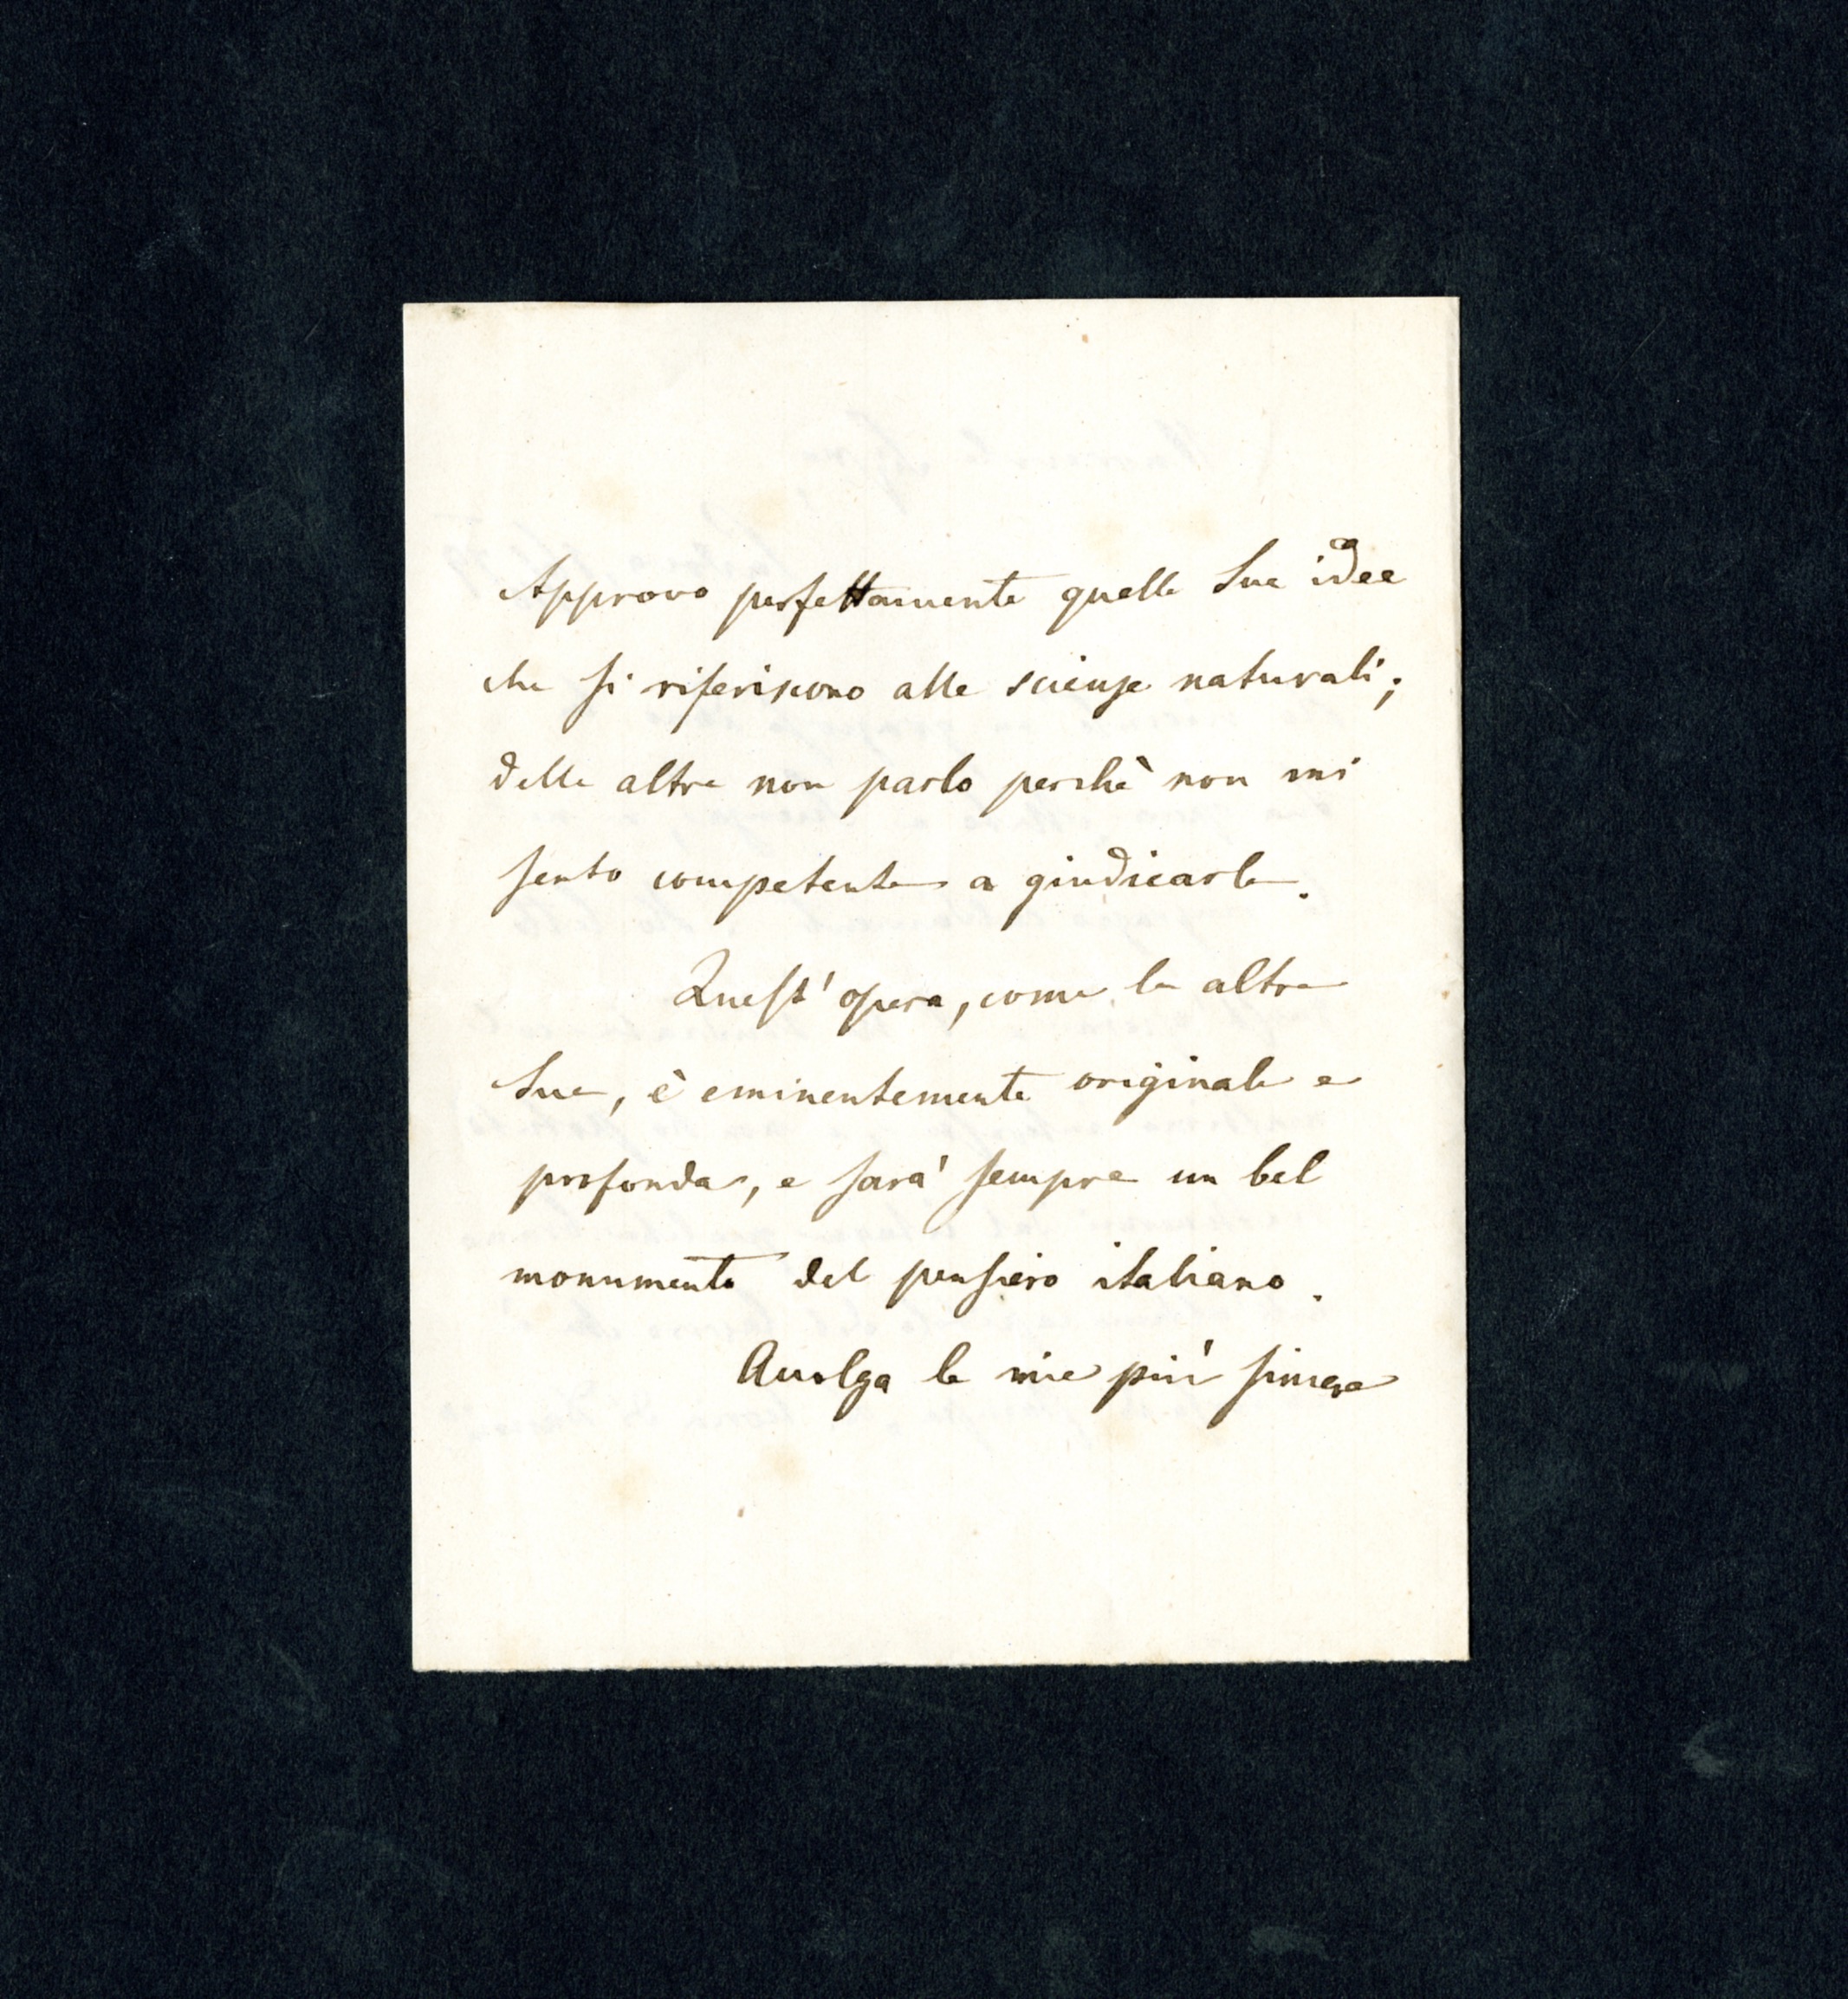 Approvo perfettamente quelle Sue idee
che si riferiscono alle scienze naturali;
delle altre non parlo perchè non mi
sento competente a giudicarle.
Quest' opera, come le altre
Sue, è eminentemente originale e
profonda, e sarà sempre un bel
monumento del pensiero italiano.
Accolga le mie più sincere